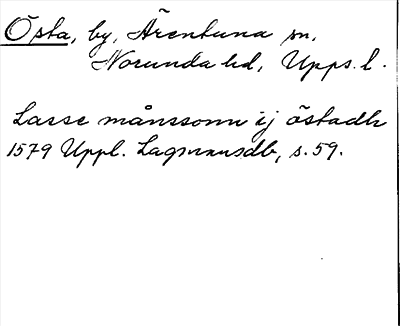 Östa, by, Ärentuna sn,
Norunda hd, Upps. l.
Lasse månssonn ij östadh
1579 Uppl. Lagmansdb, s. 59.